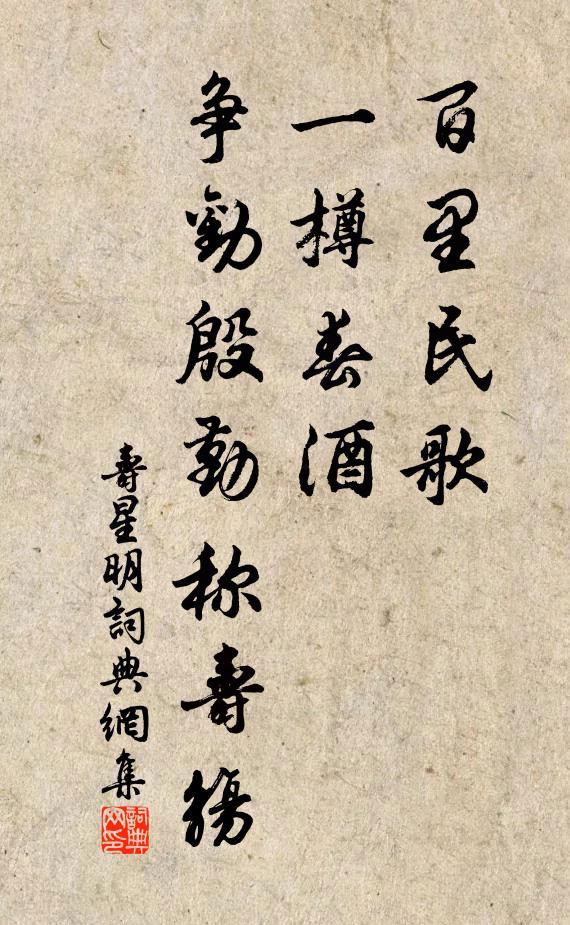 百里民歌
一樽春酒
争勸殷勤称壽觴
壽星明詞典網集
詞典网印